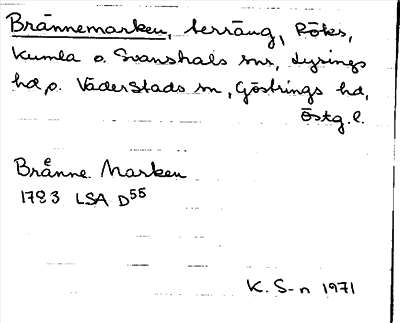 Brännemarken, terräng, Röks,
Kumla o. Svanshals snr, Lysings
hd, o. Väderstads sn, Göstrings hd,
Östg. l.
Brånne Marken
1783 LSA D55
K. S-n 1971